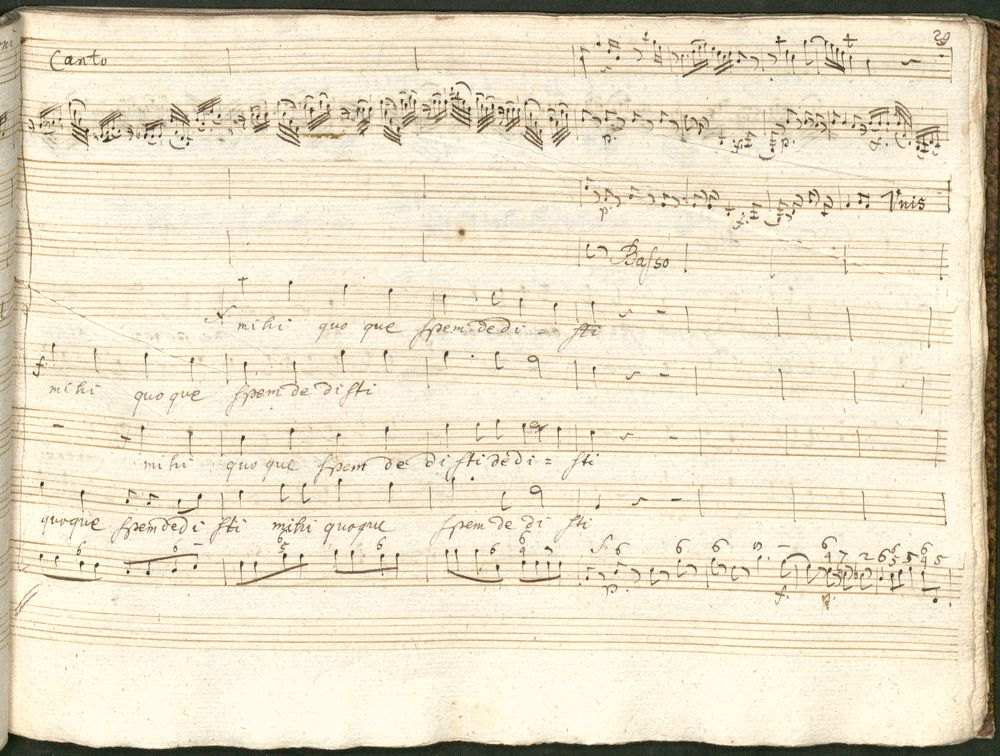 29
Canto
p. f. p. f.
p. f. Unis
Basso
mihi quo que spem dedi = sti
f. mihi quoque spem de di sti
f mihi quo que spem de di sti dedi = sti
quoque spem dedi sti mihi quoque spem de di sti
6 6 6 5 6 6 6 4 7 6 6 6 9. 6 4 7 2 6 6 5 5 6 4 5
p. f. p.